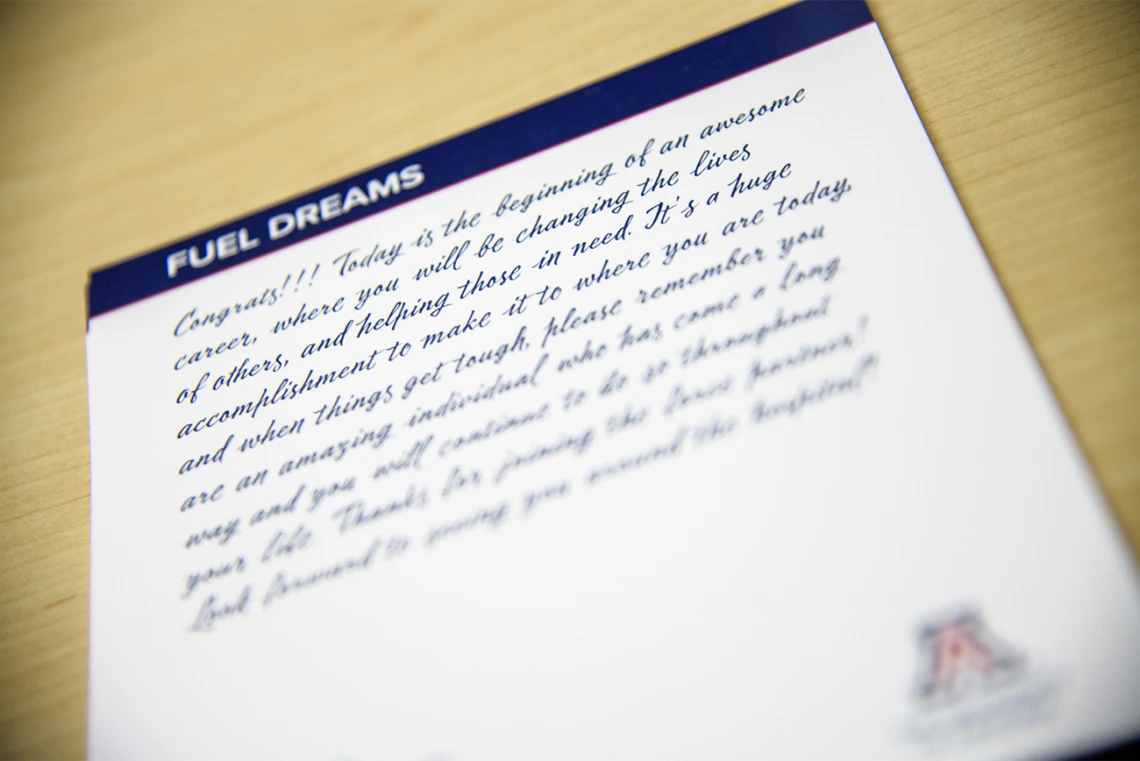 FUEL DREAMS
Congrats!!! Today is the beginning of an awesome
career, where you will be changing the lives
of others, and helping those in need. It's a huge
accomplishment to make it to where you are today,
and when things get tough, please remember you
are an amazing individual who has come a long
way and you will continue to do so throughout
your life. Thanks for joining the
Look forward to seeing you around the hospital!